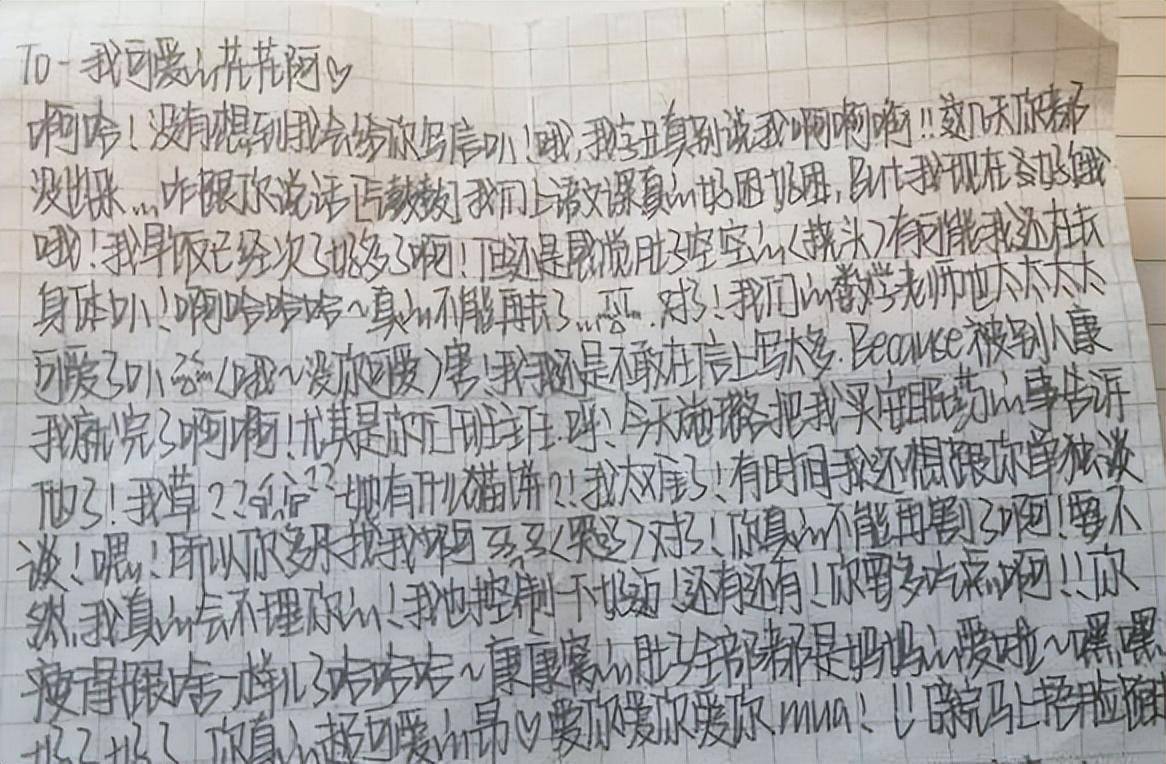 To-我可爱的花花阿♡
啊哈！没有想到我会给你写信叭！哦，我字丑真别说我啊啊啊！！这几天你都
没出来...咋跟你说话[气鼓鼓]我们上语文课真的好困好困，But我现在好饿
哦！我早饭已经次了好多了啊！但还是感觉肚子空空的（挠头）有可能我还在去
身体叭！啊哈哈哈～真的不能再去了...对了！我们的数学老师也太太太太
可爱了叭（哦～没你可爱）害！我还是不敢在信上写太多.Because被别人康
我就完了啊啊！尤其是你们班主任.呼！今天她把我买安眠药的事告诉
他了！我草？？她有什么猫饼？！我太难了！有时间我还想跟你单独谈
谈！嗯！所以你多来找我啊（哭了）对了！你真的不能再割了啊！要不
然，我真的会不理你的！我也控制一下好逊！还有还有！你要多吃点啊！！你
瘦得跟啥一样儿了哈哈哈～康康窝的肚子全部都是妈妈的爱啦～嘿嘿
好了好了你真的超可爱的昂♡爱你爱你爱你mua！马上捂脸